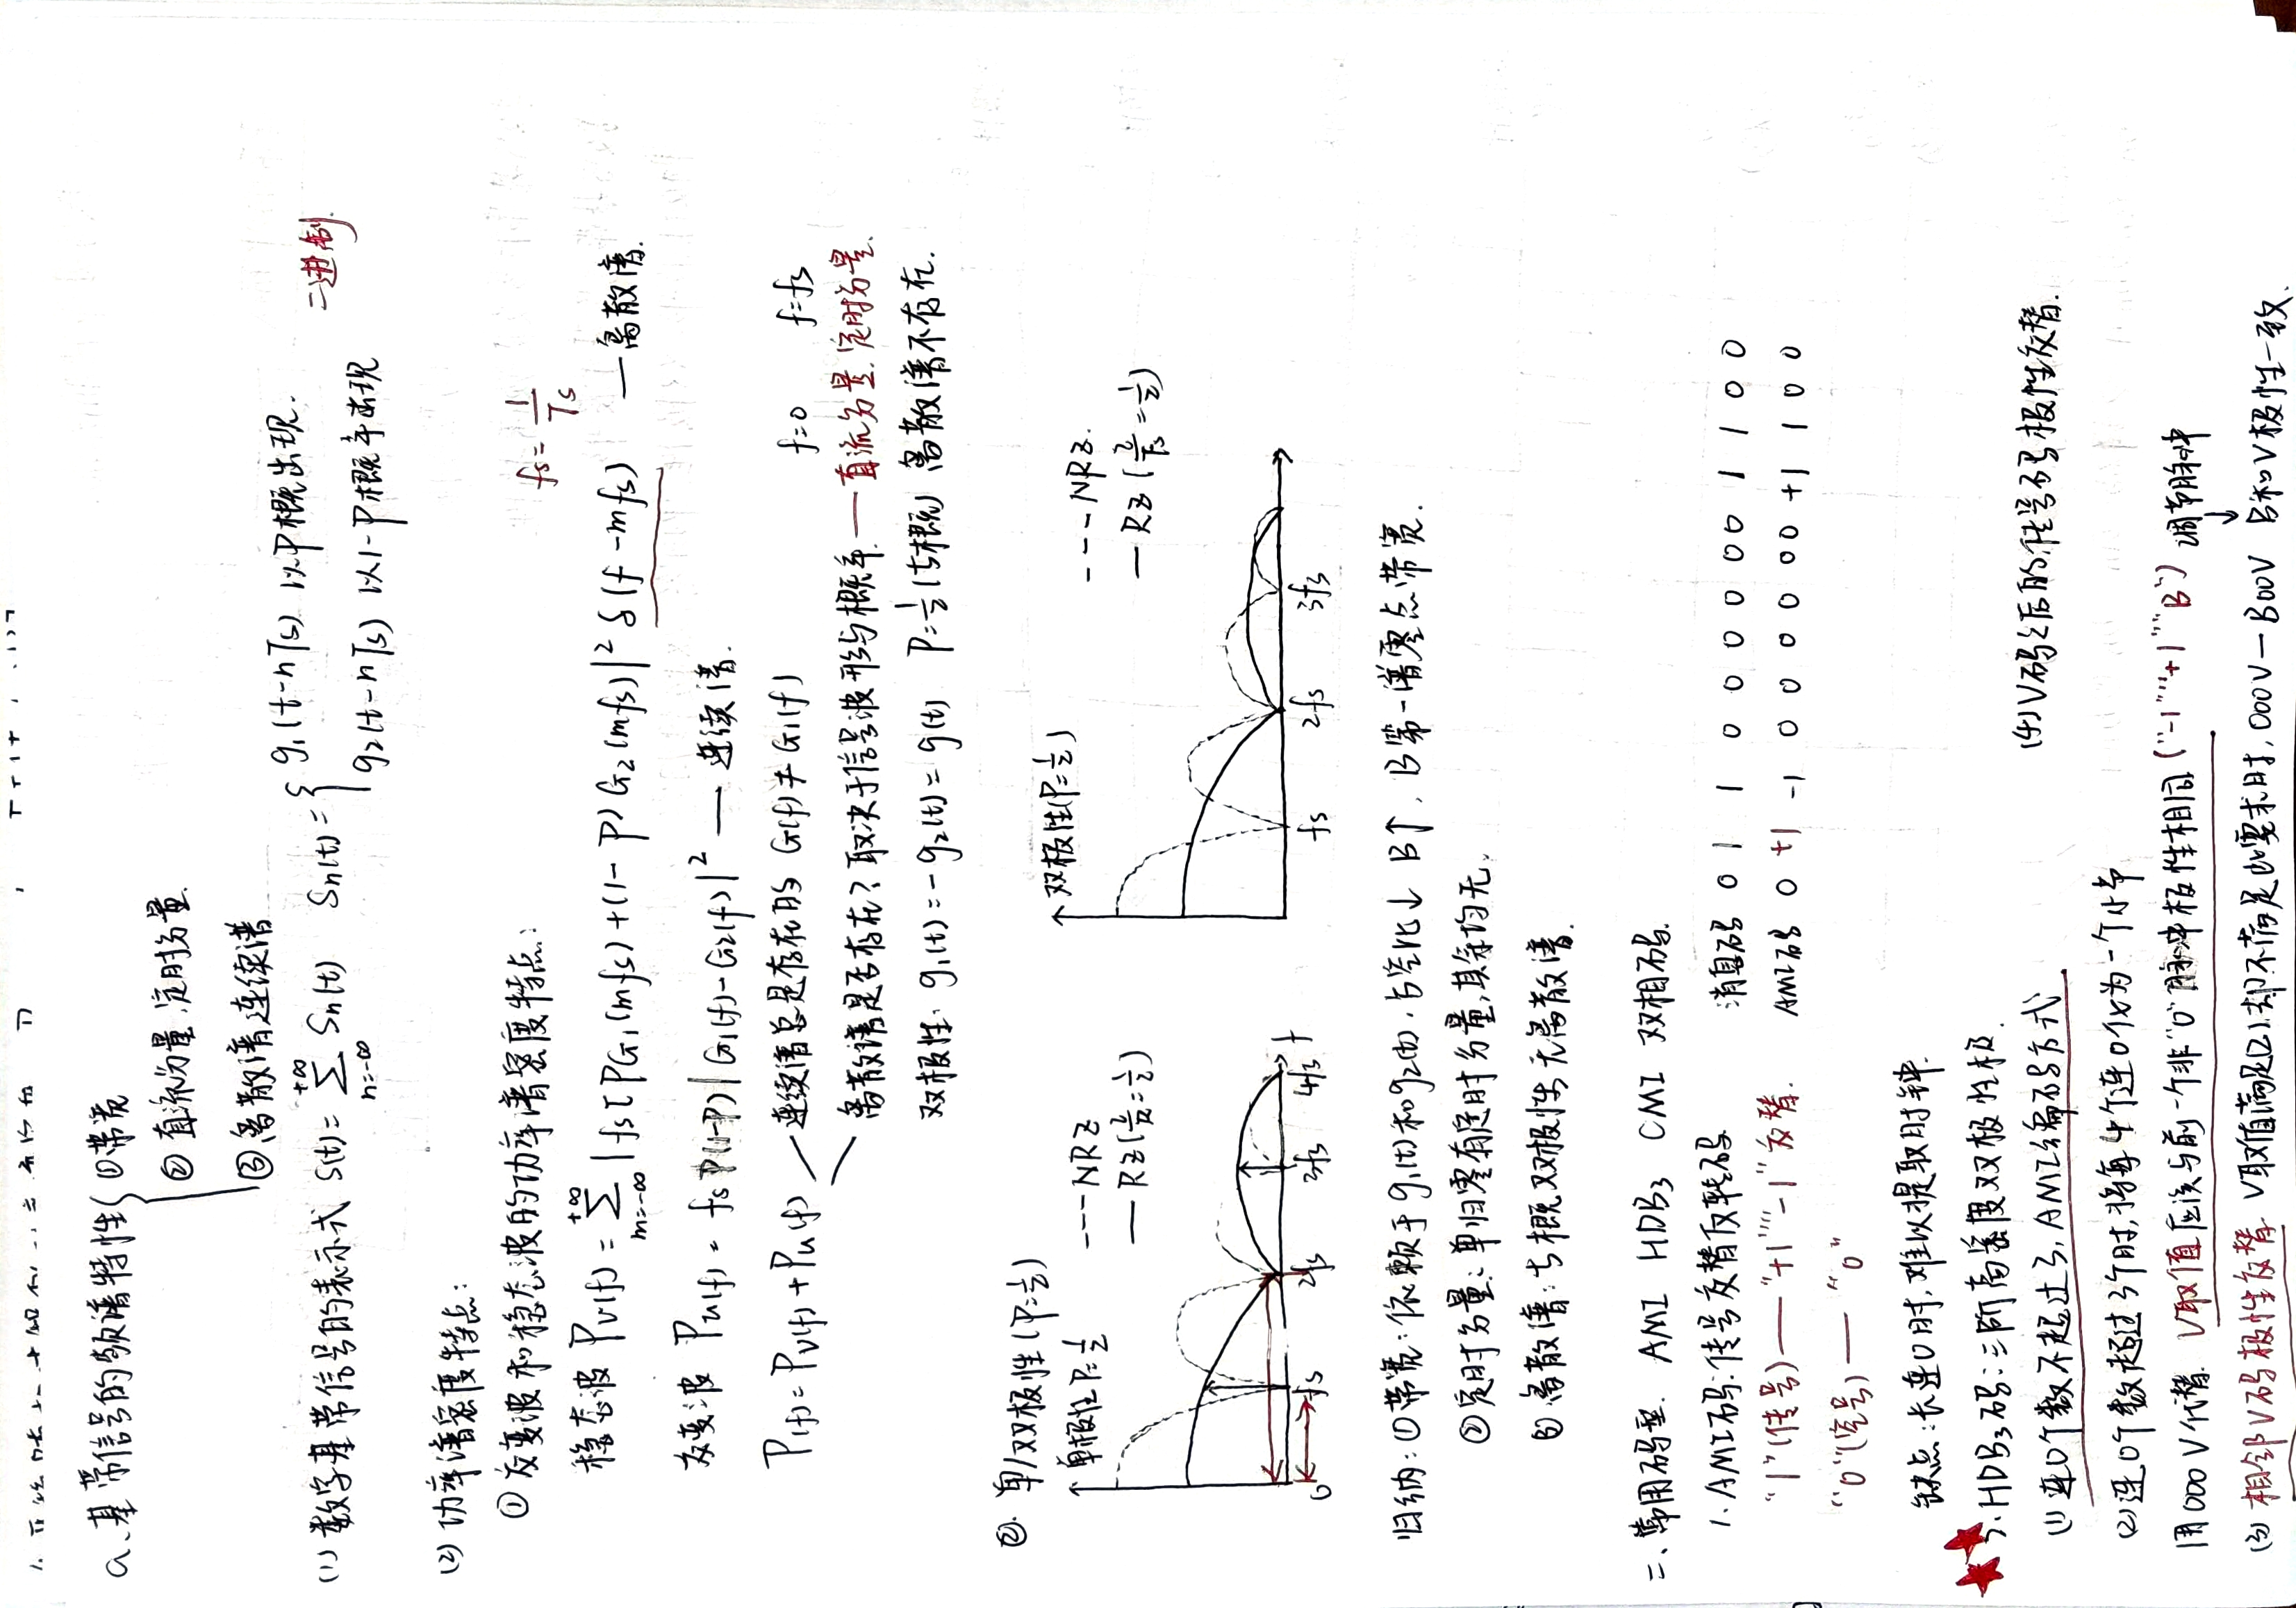 a、基带信号的频谱特性 ①带宽
②直流分量,定时分量.
③离散谱连续谱
(1)数字基带信号的表示式 S(t)=∑_{n=-∞}^{+∞} Sn(t) Sn(t)={ g₁(t-nTs) 以P概出现.
g₂(t-nTs) 以1-P概率出现
二进制.
(2)功率谱密度特点:
①交变波和稳态波的功率谱密度特点:
fs=1/Ts
稳态波 Pv(f)=∑_{m=-∞}^{+∞}|fs[PG₁(mfs)+(1-P)G₂(mfs)|²δ(f-mfs) —离散谱.
交变波 Pu(f)=fsP(1-P)|G₁(f)-G₂(f)|² — 连续谱.
P(f)=Pv(f)+Pu(f) 连续谱总是存在的 G(f)≠G₁(f)
f=0 f=fs
离散谱是否存在?取决于信号波形与概率.—直流分量.定时分量.
双极性: g₁(t)=-g₂(t)=g(t) P=1/2(等概) 离散谱不存在.
②. 单/双极性(P=1/2)
单极性P=1/2 ---NRZ
—RZ(=1/2)
0 fs 2fs 3fs 4fs f
双极性(P=1/2) ---NRZ.
—RZ(τ/Ts=1/2)
fs 2fs 3fs
归纳:①带宽:依赖于g₁(t)和g₂(t).占空比↓ B↑, B第一谱零点带宽.
②定时分量:单归零有定时分量,其余均无.
③离散谱:等概双极性无离散谱.
二、常用码型. AMI HDB₃ CMI 双相码.
1.AMI码:传号交替反转码
“1”(传号)—“+1”“-1”交替.
“0”(空号)—“0”
消息码 0 1 1 0 0 0 0 0 0 1 1 0 0
AMI码 0 +1 -1 0 0 0 0 0 0 +1 1 0 0
缺点:长连0时,难以提取时钟.
2.HDB₃码:三阶高密度双极性极.
(1)连0个数不超过3,AMI编码方式.
(2)连0个数超过3个时,将每4个连0化为一个小节
用000V代替. V取值应该与前一个非“0”脉冲极性相同(“-1”“+1”“B”) 调节脉冲
(3)相邻V码极性交替 V取值满足(2)却不满足此要求时,000V—B00V B和V极性一致.
(4)V码之后的传号码极性交替.